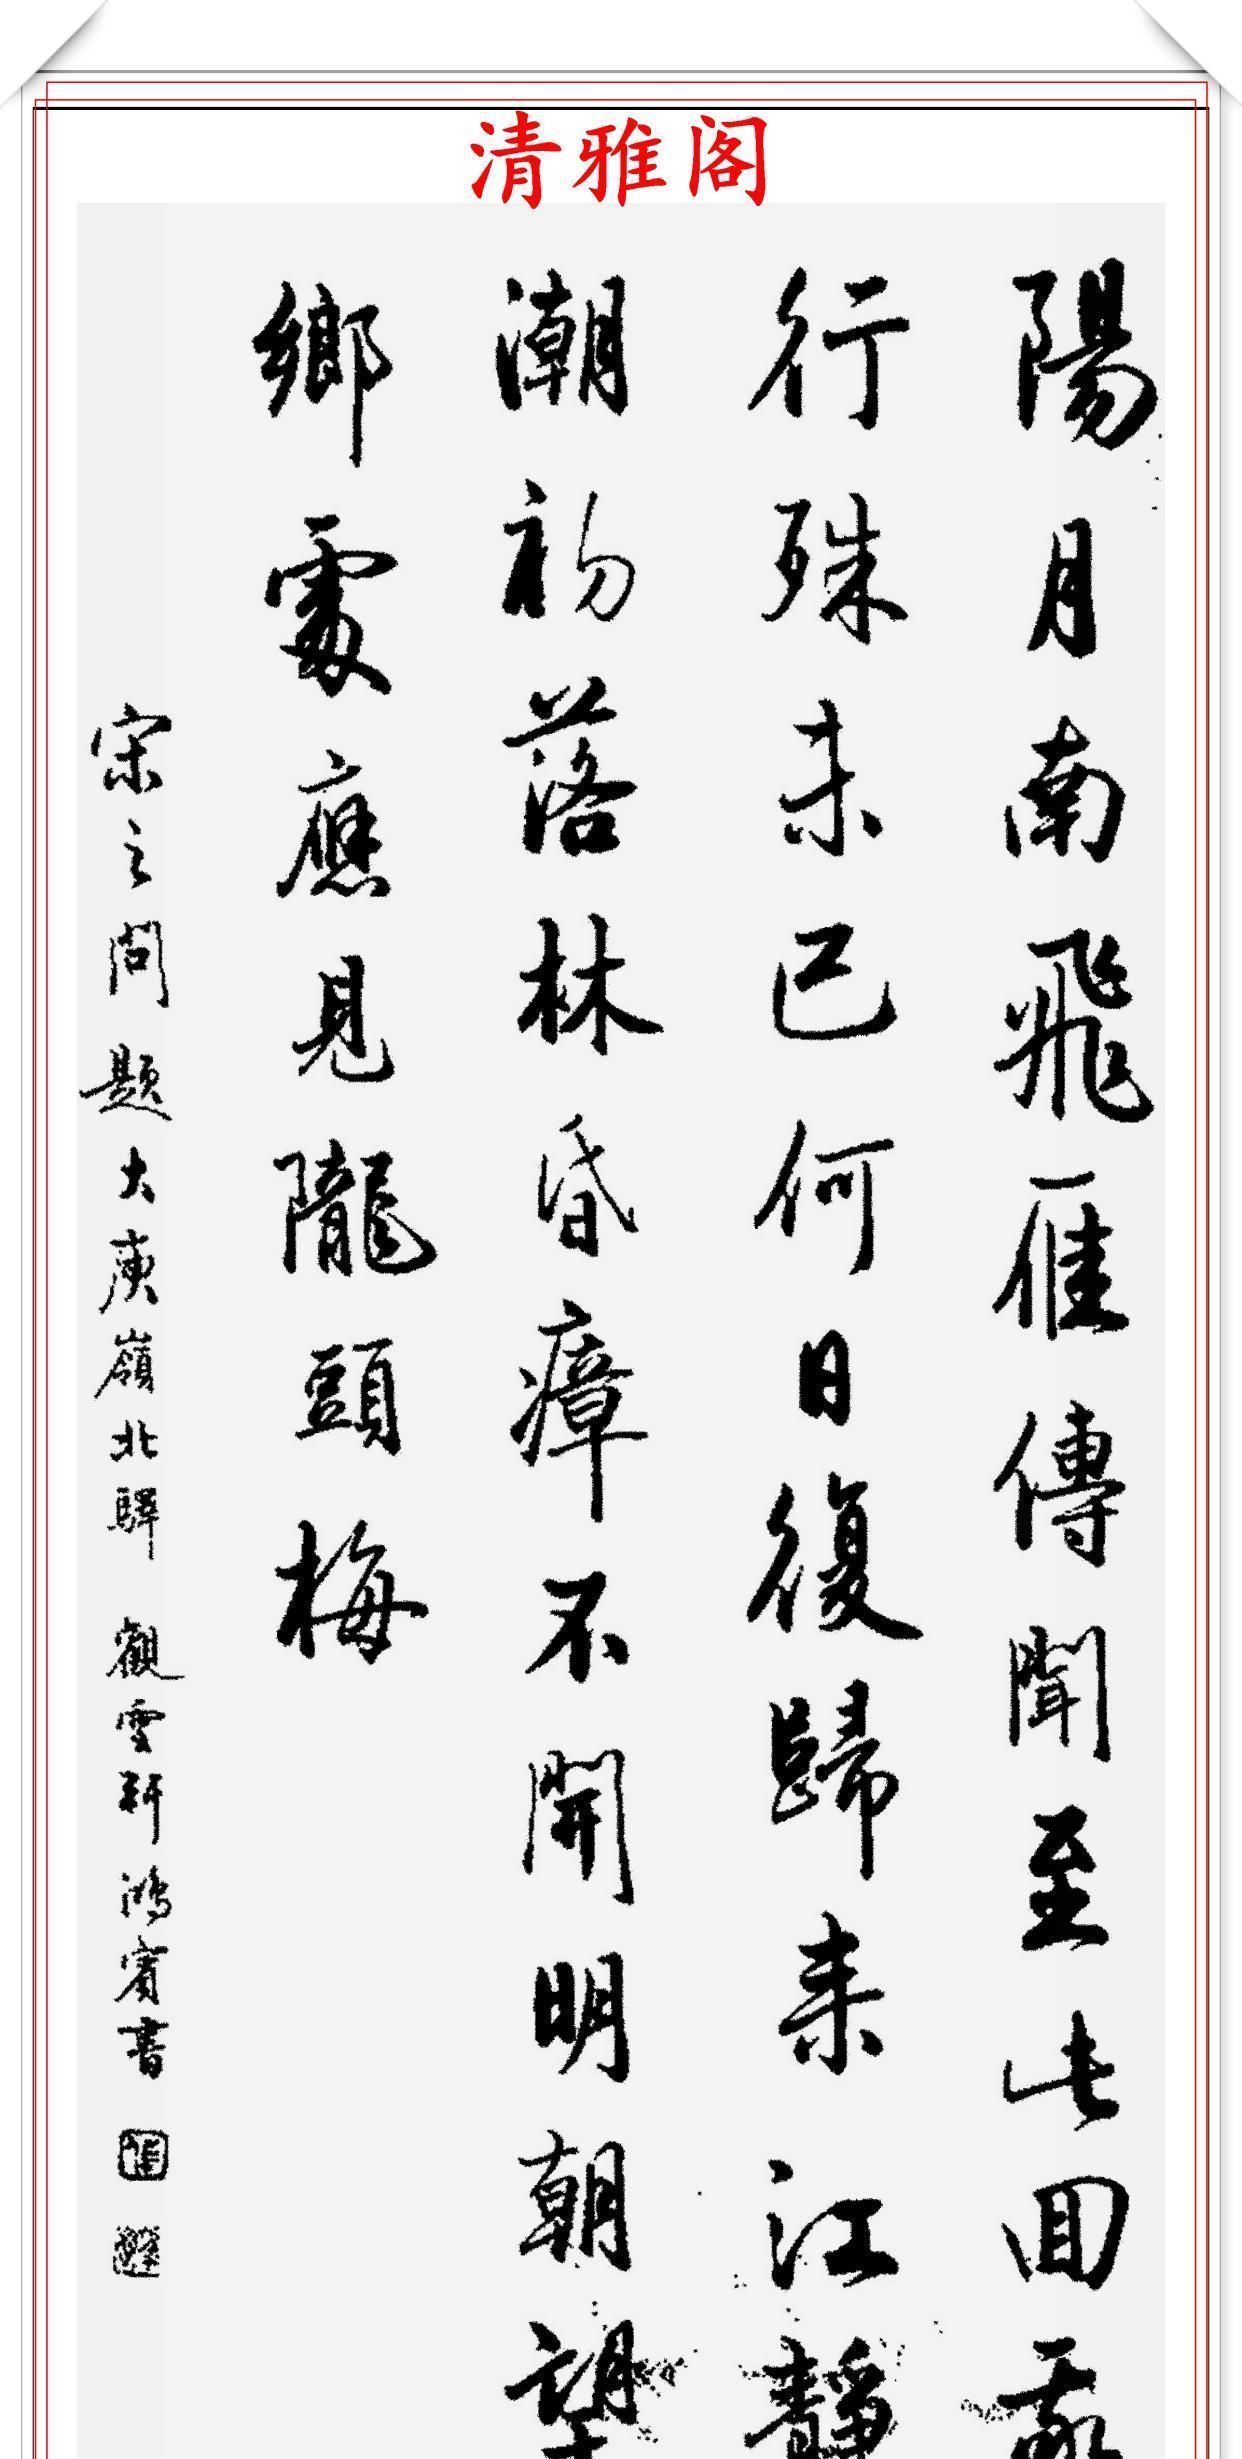 清雅阁
陽月南飛雁傳聞至此回我
行殊未已何日復歸来江靜
潮初落林昏瘴不開明朝望
鄉處應見隴頭梅
宋之問題大庾嶺北驛 觀雲軒鴻賓書